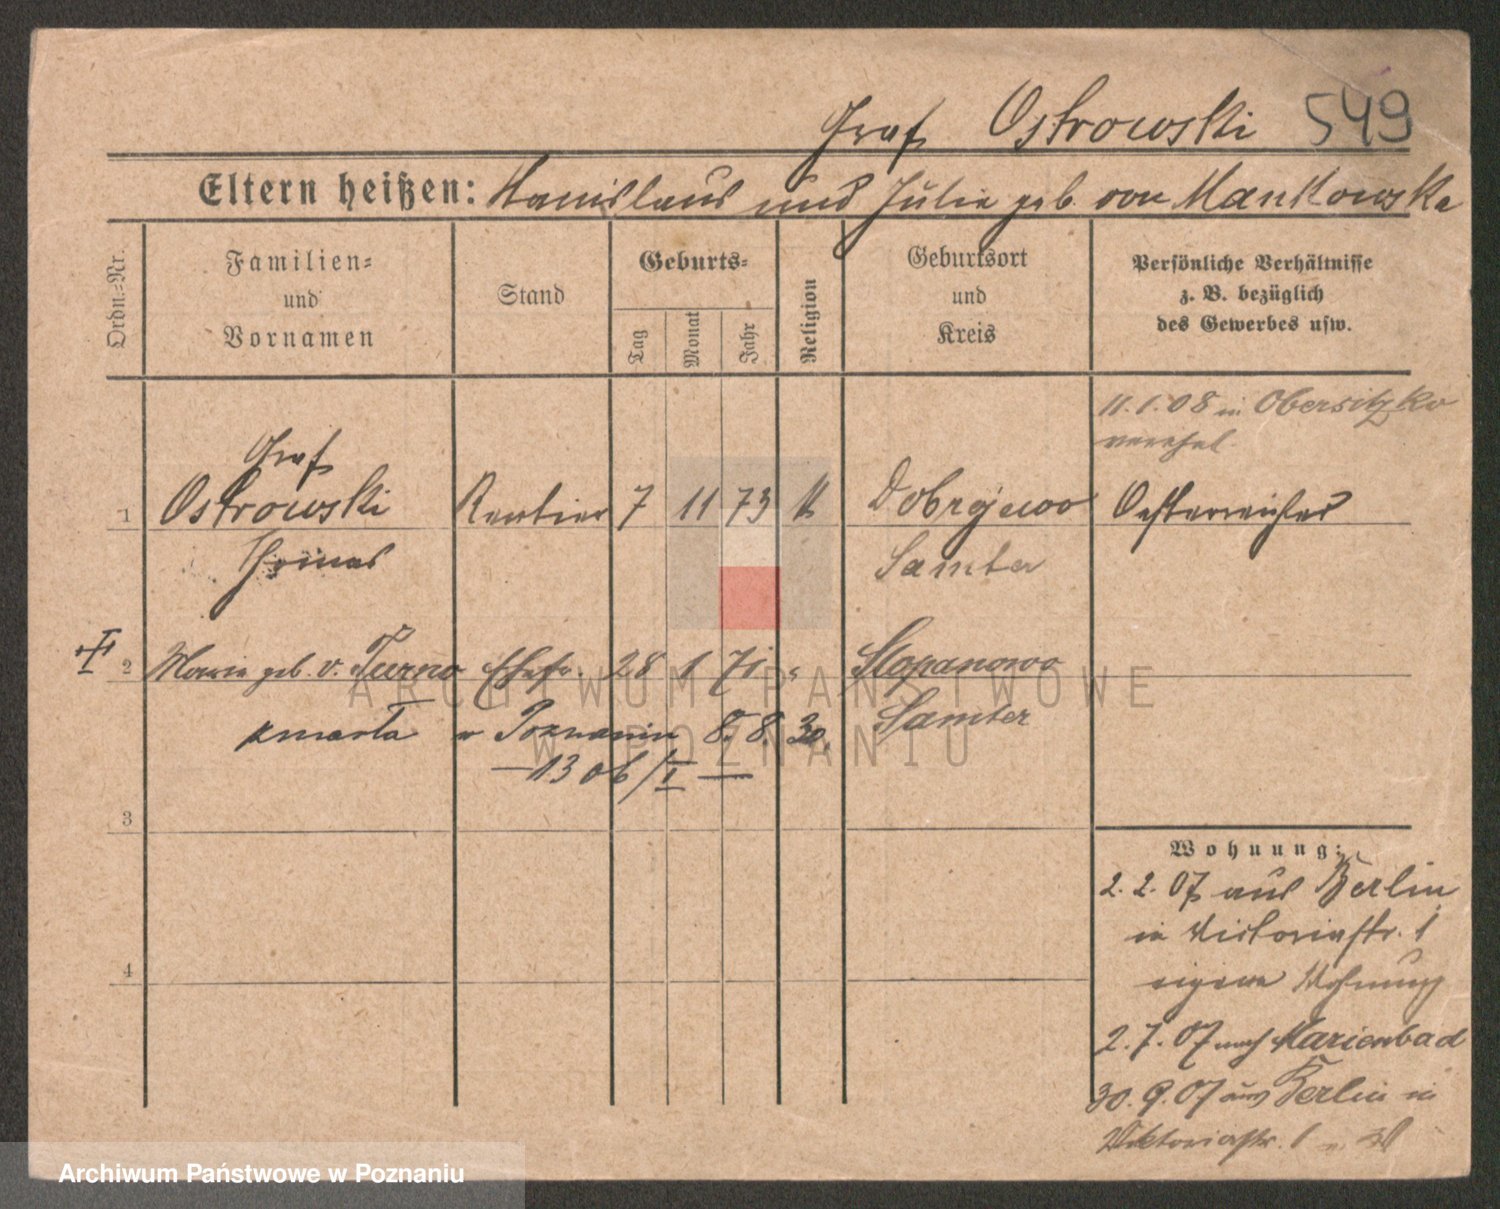 Graf Ostrowski 549
Eltern heißen: Stanislaus und Julie geb. von Mankowska
Ordn.-Nr.
Familien-
und
Vornamen
Stand
Geburts-
Tag
Monat
Jahr
Religion
Geburtsort
und
Kreis
Persönliche Verhältnisse
z. B. bezüglich
des Gewerbes usw.
11.1.08 in Obersitzko
verehel.
Graf
1 Ostrowski Rentier 7 11 73 k Dobrojewo Oesterreicher
Thomas Samter
2 Marie geb. v. Turno Ehefr. 28 1 71 " Slopanowo
zmarła w Poznaniu 8. 8. 30. Samter
— 1306/I —
3
4
Wohnung:
2.2.07 aus Berlin
in Victoriastr. 1
eigene Wohnung
2.7.07 nach Marienbad
30.9.07 aus Berlin in
Viktoriastr. 1
ARCHIWUM PAŃSTWOWE
W POZNANIU
Archiwum Państwowe w Poznaniu